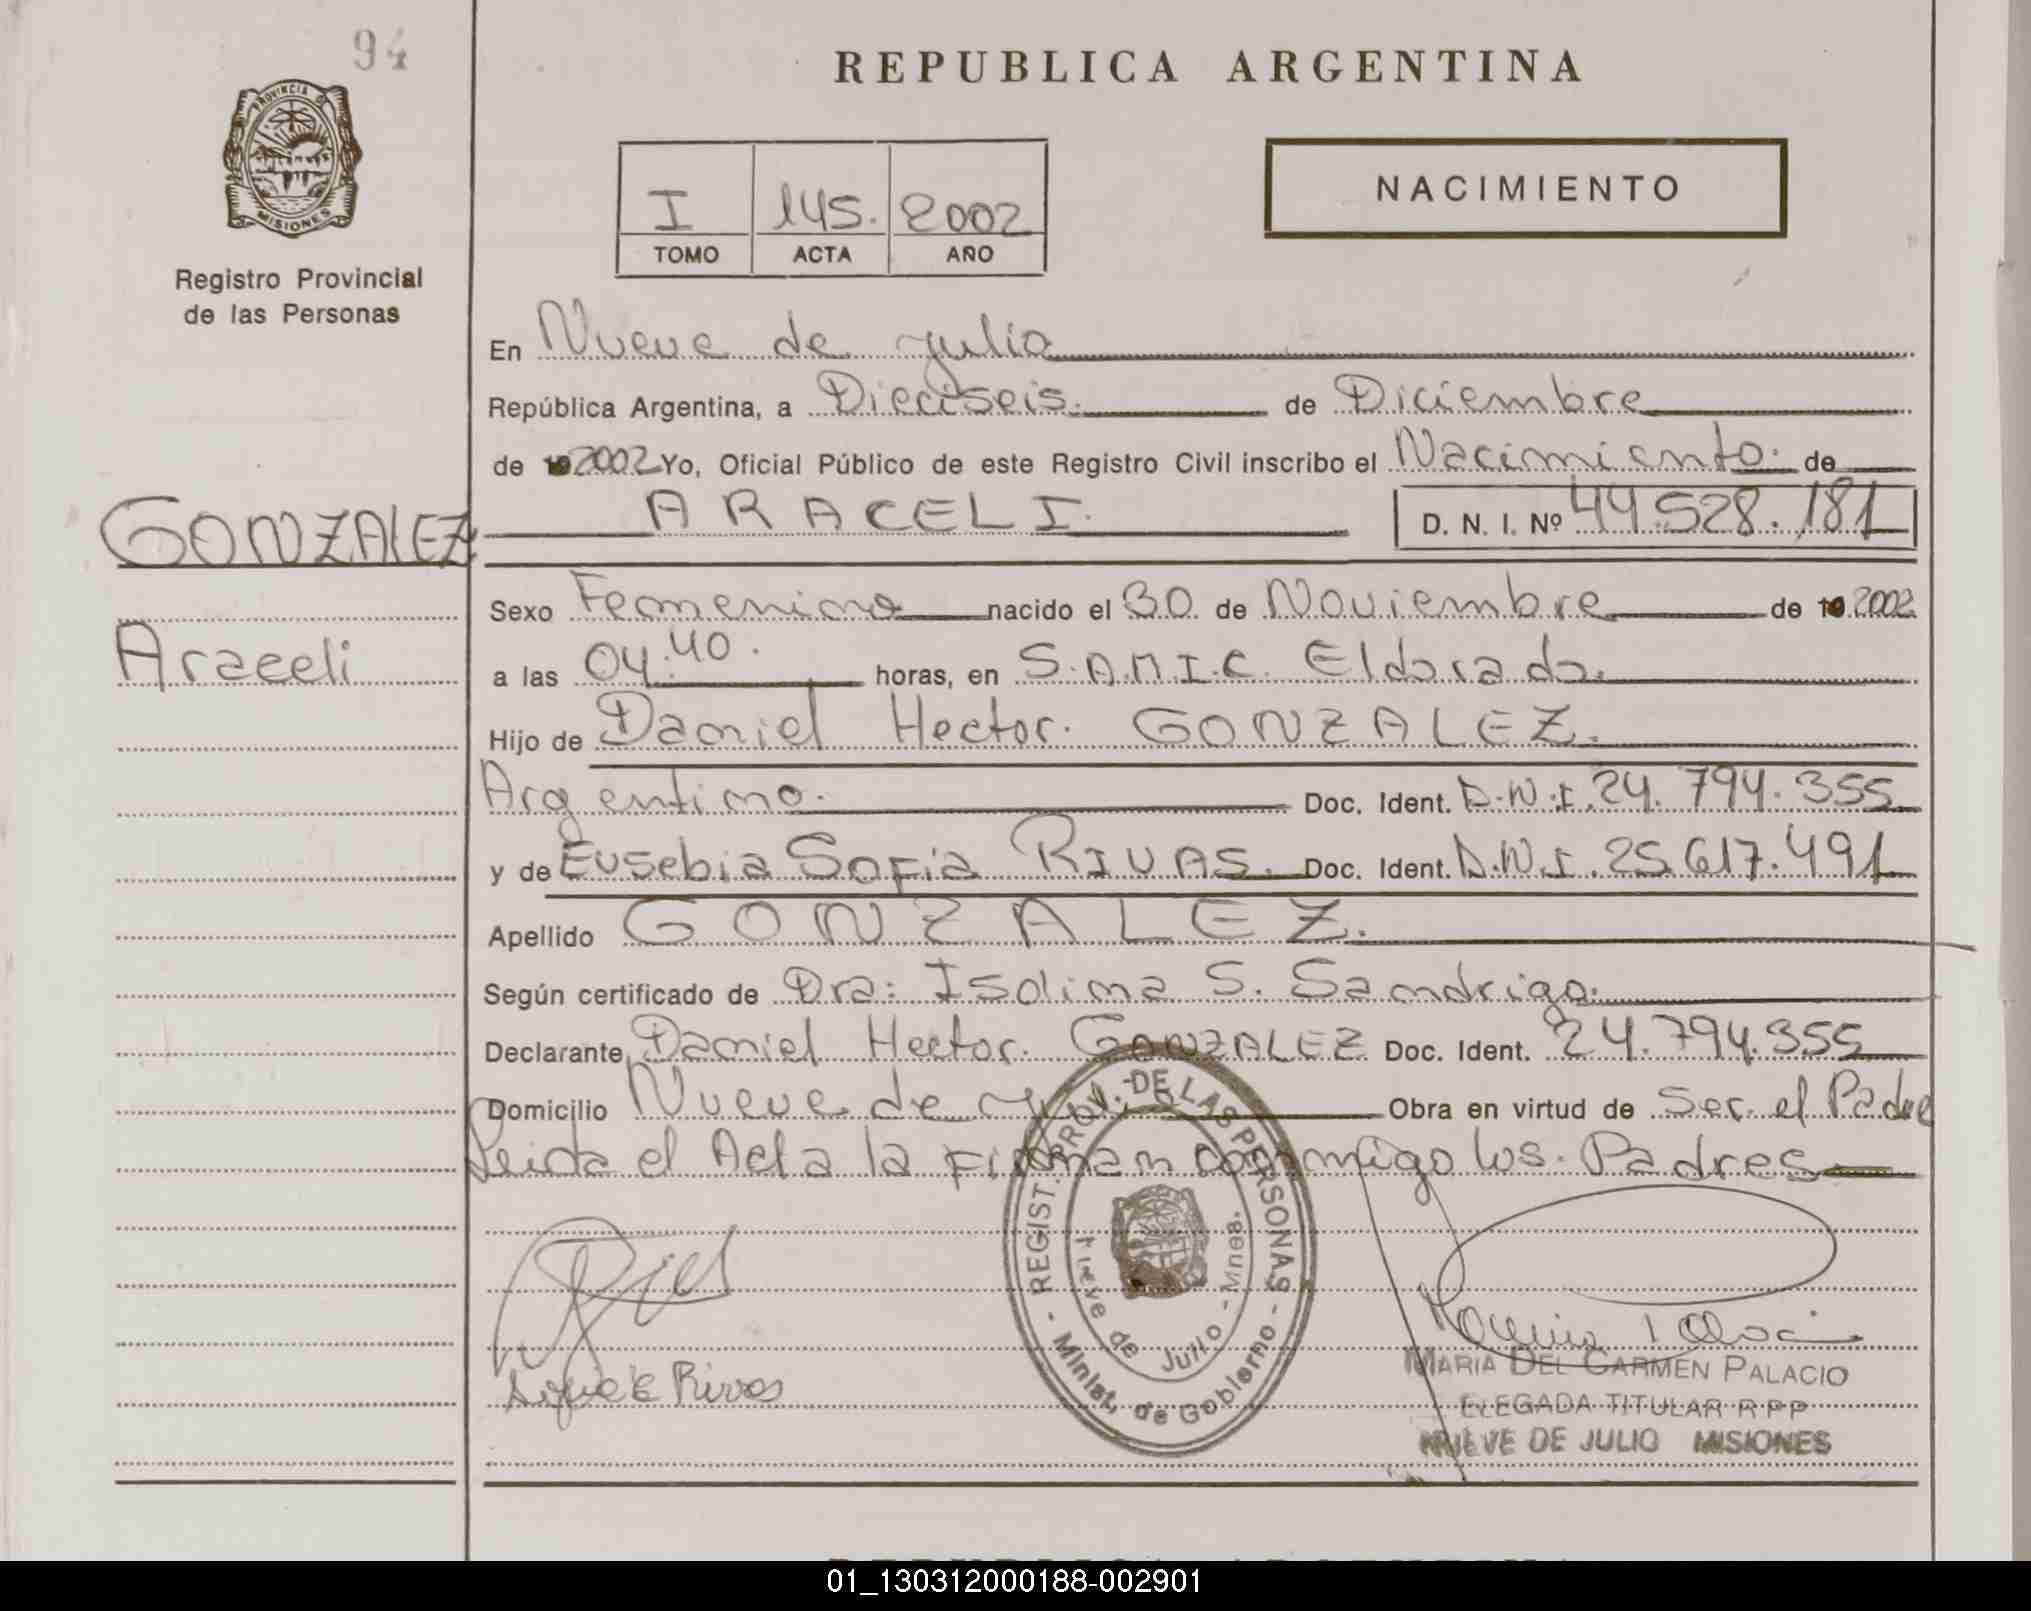 94
REPUBLICA ARGENTINA
PROVINCIA DE
MISIONES
Registro Provincial
de las Personas
I 145. 2002
TOMO ACTA AÑO
NACIMIENTO
En Nueve de Julio
República Argentina, a Dieciseis. de Diciembre
de 19 2002 Yo, Oficial Público de este Registro Civil inscribo el Nacimiento. de
GONZALEZ
ARACELI.
D. N. I. Nº 44.528.181
Araceli
Sexo Femenino nacido el 30 de Noviembre de 19 2002
a las 04:40. horas, en S.A.M.I.C. Eldorado.
Hijo de Daniel Hector. GONZALEZ.
Argentino. Doc. Ident. D.N.I. 24.794.355
y de Eusebia Sofia RIVAS. Doc. Ident. D.N.I. 25.617.491
Apellido GONZALEZ.
Según certificado de Dra: Isolina S. Sandrigo.
Declarante Daniel Hector. GONZALEZ Doc. Ident. 24.794.355
Domicilio Nueve de Julio Obra en virtud de Ser el Padre
Leida el Acta la Firman conmigo los. Padres
REGIST. PROV. DE LAS PERSONAS
- Minist. de Gobierno -
Nueve de Julio - Mnes.
Rivas
MARIA DEL CARMEN PALACIO
DELEGADA TITULAR R P P
NUEVE DE JULIO MISIONES
01_130312000188-002901